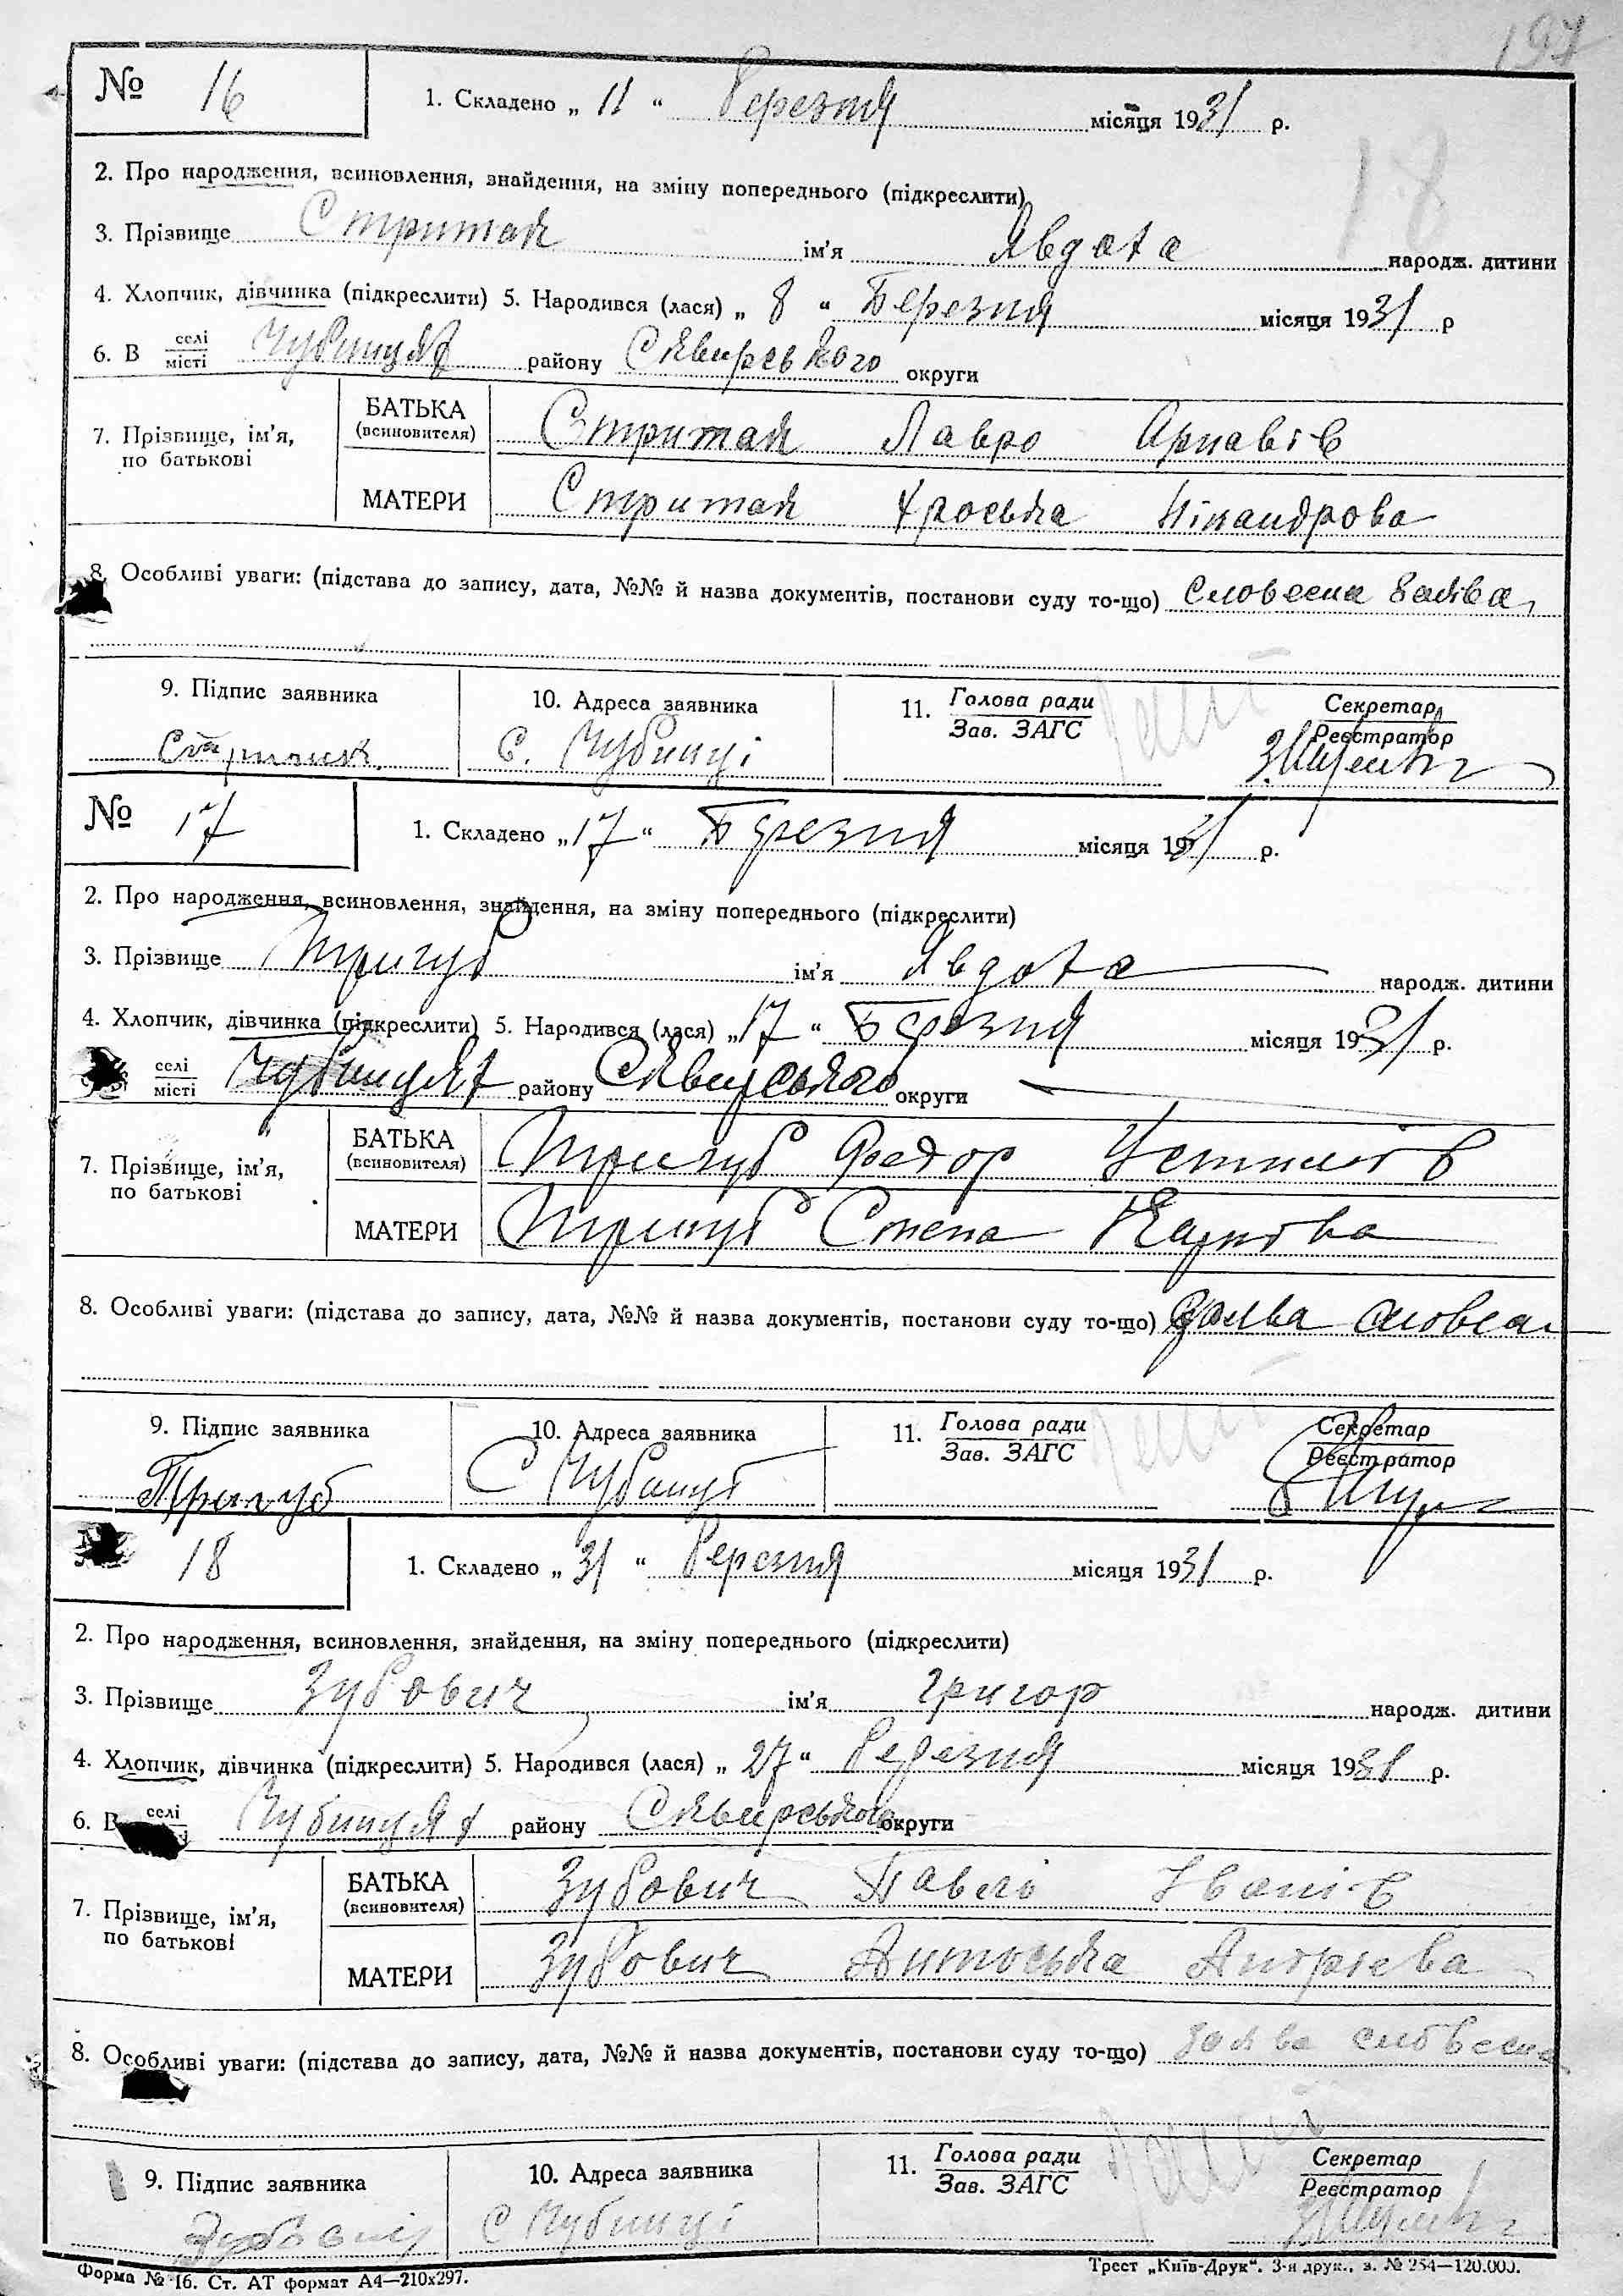 197
№ 16
1. Складено „ 11 “ березня місяця 1931 р.
18
2. Про народження, всиновлення, знайдення, на зміну попереднього (підкреслити)
3. Прізвище Стритай ім'я Явдоха народж. дитини
4. Хлопчик, дівчинка (підкреслити) 5. Народився (лася) „ 8 “ Березня місяця 1931 р
6. В селі/місті Чубинцях району Сквирського округи
7. Прізвище, ім'я, по батькові
БАТЬКА (всиновителя) Стритай Лавро
МАТЕРИ Стритай Хроська Нікандрова
8. Особливі уваги: (підстава до запису, дата, №№ й назва документів, постанови суду то-що) Словесна заява
9. Підпис заявника
10. Адреса заявника С. Чубинці
11. Голова ради
Зав. ЗАГС
Секретар
Реєстратор
№ 17
1. Складено „ 17 “ Березня місяця 1931 р.
2. Про народження, всиновлення, знайдення, на зміну попереднього (підкреслити)
3. Прізвище Тригуб ім'я Явдоха народж. дитини
4. Хлопчик, дівчинка (підкреслити) 5. Народився (лася) „ 17 “ Березня місяця 1931 р.
селі/місті Чубинцях району Сквирського округи
7. Прізвище, ім'я, по батькові
БАТЬКА (всиновителя) Тригуб Федор
МАТЕРИ Тригуб Степа Карпова
8. Особливі уваги: (підстава до запису, дата, №№ й назва документів, постанови суду то-що) Заява словесн
9. Підпис заявника Тригуб
10. Адреса заявника С Чубинці
11. Голова ради
Зав. ЗАГС
Секретар
Реєстратор
18
1. Складено „ 31 “ березня місяця 1931 р.
2. Про народження, всиновлення, знайдення, на зміну попереднього (підкреслити)
3. Прізвище Зубович ім'я Григор народж. дитини
4. Хлопчик, дівчинка (підкреслити) 5. Народився (лася) „ 27 “ березня місяця 1931 р.
6. В селі Чубинцях району Сквирського округи
7. Прізвище, ім'я, по батькові
БАТЬКА (всиновителя) Зубович Павло Іванів
МАТЕРИ Зубович Антоська Андрієва
8. Особливі уваги: (підстава до запису, дата, №№ й назва документів, постанови суду то-що) Заява словесна
9. Підпис заявника
10. Адреса заявника С Чубинці
11. Голова ради
Зав. ЗАГС
Секретар
Реєстратор
Форма № 16. Ст. АТ формат А4—210х297.
Трест „Київ-Друк“. 3-я друк., з. № 254—120.000.